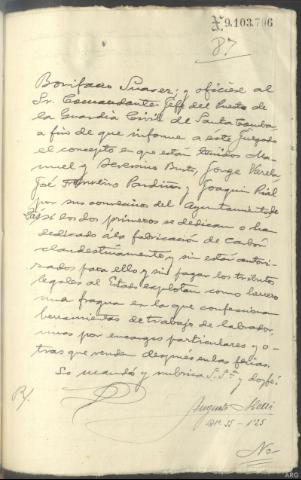 N.9.103.706
87
Bonifacio Suarez; y ofíciese al
Sr. Comandante Jefe del Puesto de
la Guardia Civil de Santa Comba
a fin de que informe a éste Juzgado
el concepto en que están tenidos Ma-
nuel y Severino Brets, Jorge Varela
José Pardiñas y Joaquin Rial
por sus convecinos del Ayuntamiento de
y si los dos primeros se dedican o han
dedicado a la fabricación de Carbón
clandestinamente y sin estar autori-
zados para ello y sin pagar los tributos
legales al Estado explotan como
una fragua en la que confeccionan
herramientas de trabajo de labrador,
unas por encargos particulares y o-
tras que venden después en las ferias.
Lo mandó y rubrica S.Sª. y doy fé.
R/.
Augusto
No-
ARG